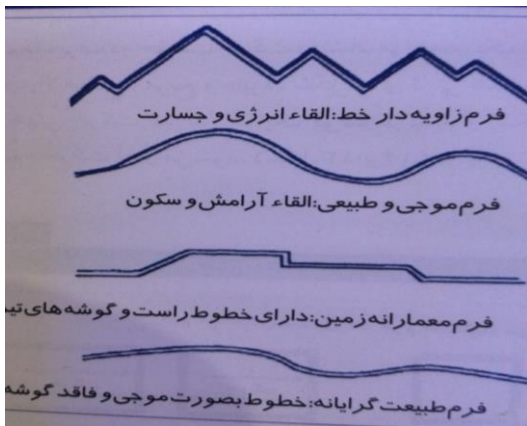 فرم زاویه دار خط:القاء انرژی و جسارت
فرم موجی و طبیعی:القاء آرامش و سکون
فرم معمارانه زمین:دارای خطوط راست و گوشه های
فرم طبیعت گرایانه:خطوط بصورت موجی و فاقد گوشه